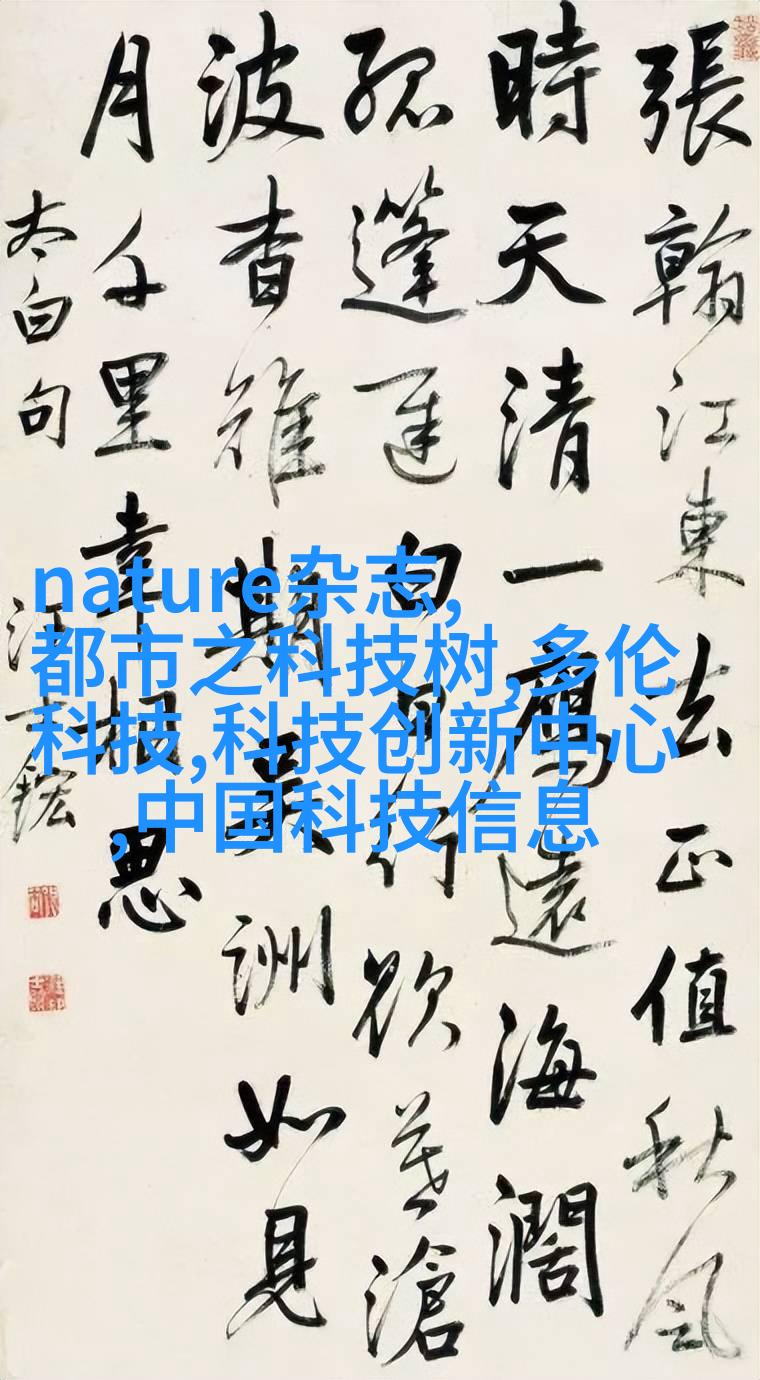 張翰江東去正值秋風
時天清一鴈遠海濶
孤蓬遲白日行欲暮滄
波杳難期吳洲如見
月千里幸相思
太白句 汪士鋐
nature杂志,
都市之科技树,多伦
科技,科技创新中心
,中国科技信息